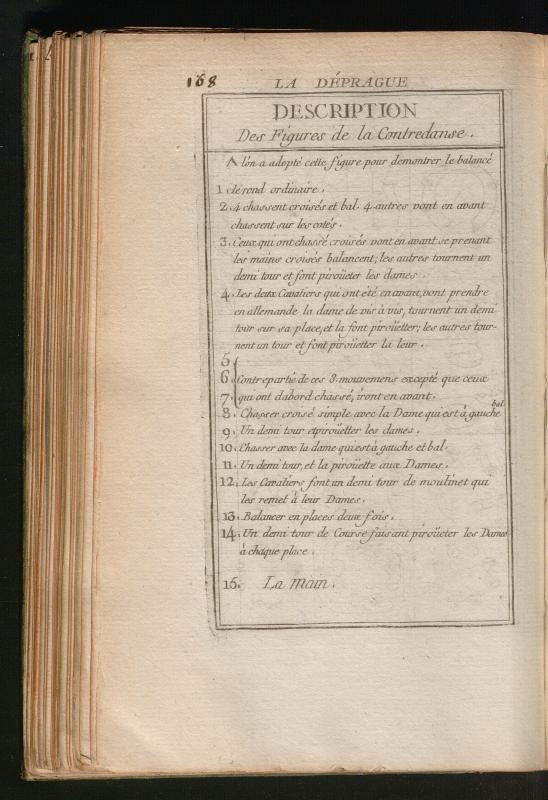 168 LA DÉPRAGUE
DESCRIPTION
Des Figures de la Contredanse.
A l'on a adopté cette figure pour demontrer le balancé
1. le rond ordinaire.
2. 4 chassent croisés et bal. 4 autres vont en avant
chassent sur les cotés.
3. Ceux qui ont chassé croisés vont en avant se prenant
les mains croisés balancent; les autres tournent un
demi tour et font piroüeter les dames.
4. Les deux Cavaliers qui ont été en avant, vont prendre
en allemande la dame de vis à vis, tournent un demi
tour sur sa place, et la font piroüetter; les autres tour-
nent un tour et font piroüetter la leur.
5
6 Contrepartie de ces 3. mouvemens excepté que ceux
7. qui ont dabord chassé, iront en avant.
8. Chasser croisé simple avec la Dame qui est à gauche bal.
9. Un demi tour et piroüetter les dames.
10. Chasser avec la dame qui est à gauche et bal.
11. Un demi tour, et la piroüette aux Dames.
12. Les Cavaliers font un demi tour de moulinet qui
les remet à leur Dames.
13. Balancer en places deux fois.
14. Un demi tour de Course faisant piroüeter les Dames
à chaque place.
15. La main.